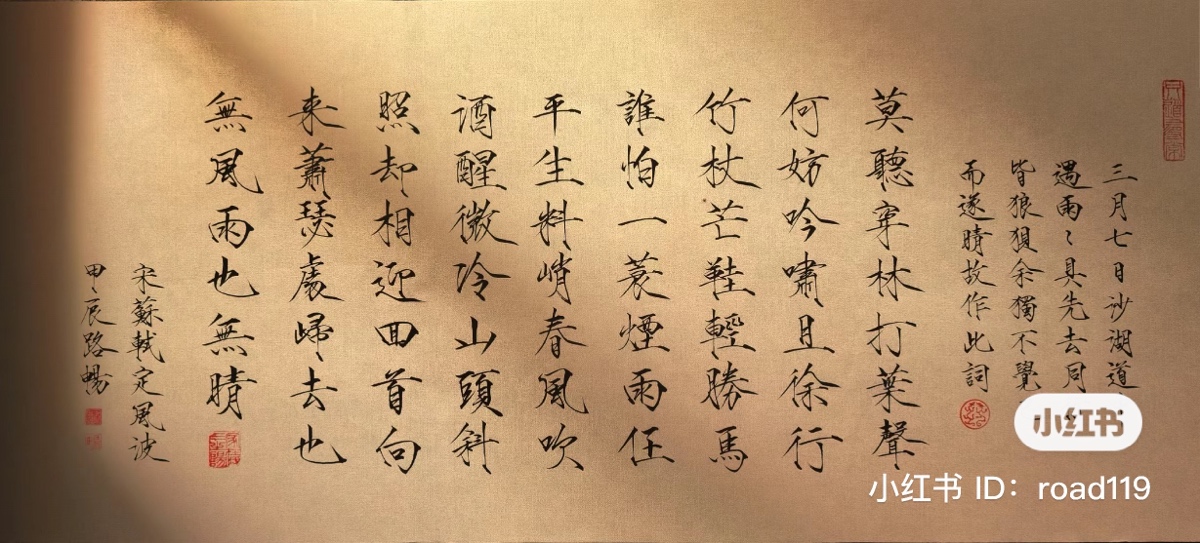 三月七日沙湖道
遇雨〻具先去同
皆狼狽余獨不覺
而遂晴故作此詞
莫聽穿林打葉聲
何妨吟嘯且徐行
竹杖芒鞋輕勝馬
誰怕一蓑煙雨任
平生料峭春風吹
酒醒微冷山頭斜
照却相迎回首向
来蕭瑟處歸去也
無風雨也無晴
宋蘇軾定風波
甲辰路暢
小红书
小红书 ID：road119